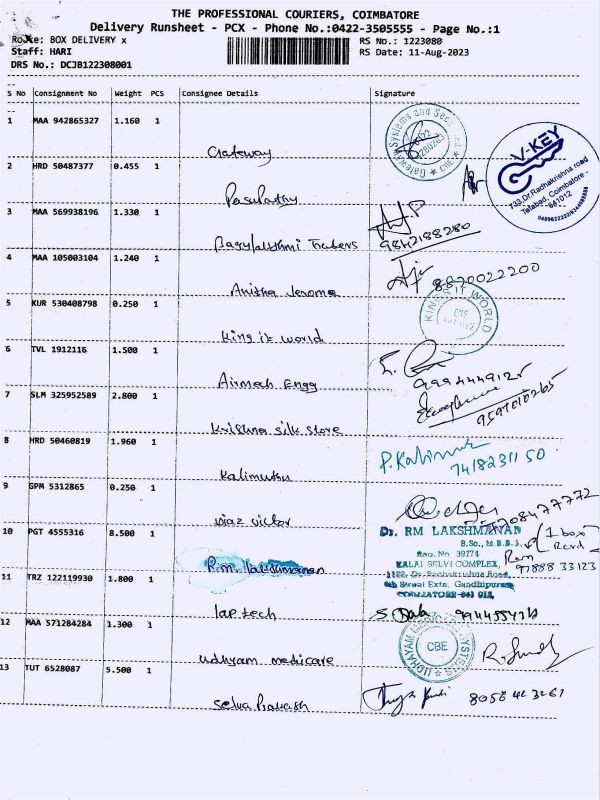 THE PROFESSIONAL COURIERS, COIMBATORE
Delivery Runsheet - PCX - Phone No.:0422-3505555 - Page No.:1
Route: BOX DELIVERY x
RS No.: 1223080
Staff: HARI
RS Date: 11-Aug-2023
DRS No.: DCJB122308001
S No Consignment No Weight PCS Consignee Details Signature
1 MAA 942865327 1.160 1
Gateway
Gateway Systems and Sec
CBE
V-KEY
733,Dr.Radhakrishna road
Tatabad, Coimbatore -
641012
2 HRD 50487377 0.455 1
Pasupathy
3 MAA 569938196 1.330 1
Traders
9842188280
4 MAA 105003104 1.240 1
Anitha Jerome
8820022200
5 KUR 530408798 0.250 1
King it world
KING IT WORLD
CBE
6 TVL 1912116 1.500 1
Airmech Engg
9994449125
7 SLM 325952589 2.800 1
Krishna silk store
8 HRD 50460819 1.960 1
Kalimuthu
74182 311 50
9 GPM 5312865 0.250 1
victor
8477772
10 PGT 4555316 8.500 1
R.M. Lakshmanan
Dr. RM LAKSHMANAN
B.Sc., M.B.B.S.,
Reg. No. 39774
KALAI SELVI COMPLEX,
Dr. Radhakrishna Road,
Street Extn. Gandhipuram
COIMBATORE-641 012.
(1 box
Recd
97888 33123
11 TRZ 122119930 1.800 1
lap tech
12 MAA 571284284 1.300 1
udhyam medicare
CBE
13 TUT 6528087 5.500 1
Selva Prakash
8056 423261